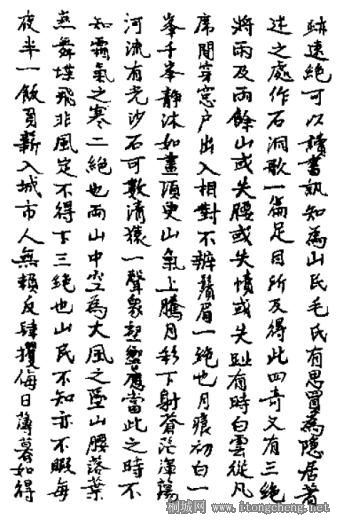 跡遠絶可以讀書訊知為山民毛氏有思買為隱居者
述之處作石洞歌一篇足目所及得此四奇又有三絶
將雨及雨餘山或失腰或失幘或失趾有時白雲從几
席間穿窓户出入相對不辨鬚眉一絶也月痕初白一
峯千峯靜沐如畫頃更山氣上騰月彩下射蒼茫渾蕩
河流有光沙石可數清猿一聲衆壑響應當此之時不
知霜氣之寒二絶也兩山中空為大風之墜山腰落葉
燕舞蝶飛非風定不得下三絶也山民不知亦不暇每
夜半一飯負薪入城市人無賴反肆攫侮日薄暮如得
桐城网 www.itongcheng.net